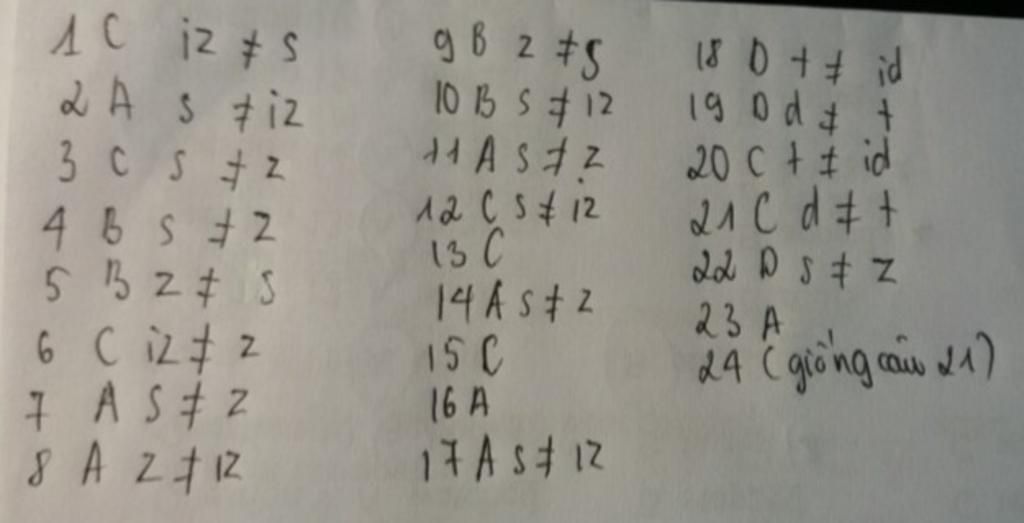 1 C iz ≠ s
2 A s ≠ iz
3 C s ≠ z
4 B s ≠ z
5 B z ≠ s
6 C iz ≠ z
7 A s ≠ z
8 A z ≠ iz
9 B z ≠ s
10 B s ≠ iz
11 A s ≠ z
12 C s ≠ iz
13 C
14 A s ≠ z
15 C
16 A
17 A s ≠ iz
18 D t ≠ id
19 D d ≠ t
20 C t ≠ id
21 C d ≠ t
22 D s ≠ z
23 A
24 (giống câu 21)